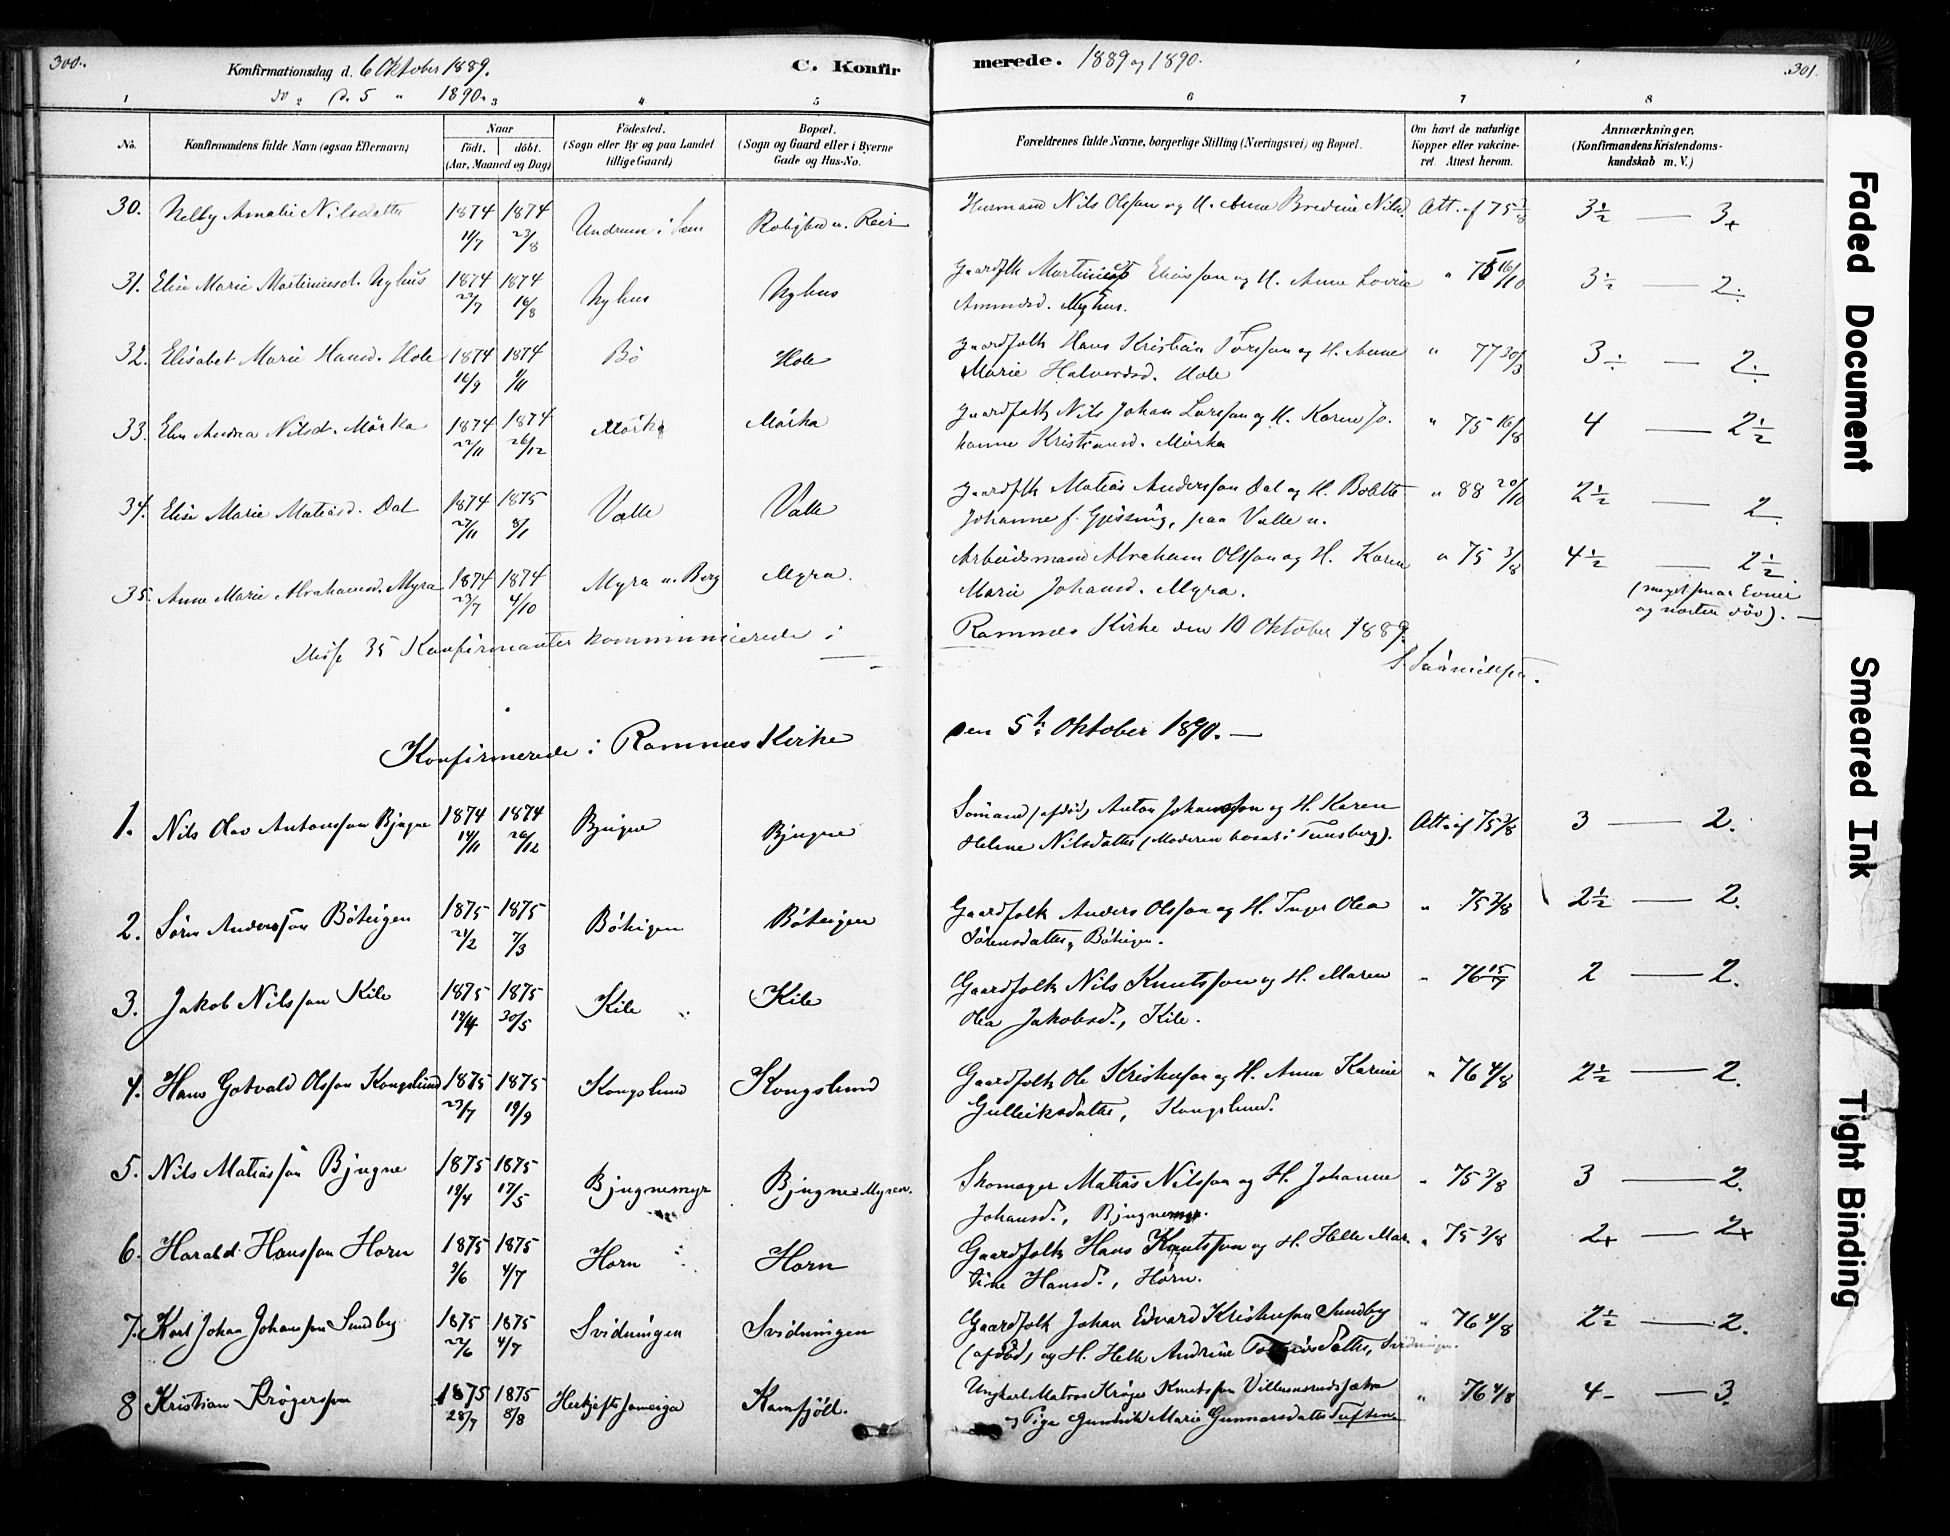 300.
Konfirmationsdag d. 6 Oktober 1889.
do d. 5 " 1890.
C. Konfir
merede. 1889 og 1890.
301.
1 2 3 4 5 6 7 8
No. Konfirmandens fulde Navn (ogsaa Efternavn) Naar født. døbt. (Aar, Maaned og Dag) Fødested. (Sogn eller By og paa Landet tillige Gaard) Bopæl. (Sogn og Gaard eller i Byerne Gade og Hus-No.
Forældrenes fulde Navne, borgerlige Stilling (Næringsvei) og Bopæl. Om havt de naturlige Kopper eller vakcineret. Attest herom. Anmærkninger. (Konfirmandens Kristendomskundskab m. V.)
30. Nelly Amalie Nilsdatter 1874 11/7 1874 23/8 Undrum i Sem
Nils Olsson og H. Anna Bredine Nilsd. Att. af 75 3/8 3½ — 3+
31. Elise Marie Martiniusd. Nyhus 1874 27/7 1874 16/8 Nyhus Nyhus
Gaardflk Martinius Eliasson og H. Anne Lovise " 16/10 3½ — 2÷
Nyhus.
32. Elisabet Marie Hansd. Hole 1874 16/9 1874 1/11 Bö Hole
Gaardfolk Hans Kristian Torsson og H. Anne " 77 30/3 3÷ — 2÷
Marie Halvordsd. Hole
33. Elen Andrea Nilsd. Mörka 1874 22/11 1874 26/12 Mörka Mörka
Gaardfolk Nils Johan Larsson og H. Karen Jo- " 75 16/8 4 — 2½
hanne Kristiansd. Mörka
34. Elise Marie Matiasd. Dal 1874 27/11 1875 8/1 Valle Valle
Gaardflk Matias Andersson Dal og H. Bolette " 88 20/10 2½ — 2.
Johanne f. Gjessing, paa Valle u.
35. Anne Marie Abrahamsd. Myra 1874 23/7 1874 4/10 Myra u. Berg Myra.
Arbeidsmand Abraham Olsson og H. Karen " 75 3/8 4½ — 2½.
Marie Johansd. Myra. (meget smaa Evner
og næsten döv). —
Disse 35 Konfirmanter kommunicerede i Ramnes Kirke den 10 Oktober 1889.
Konfirmerede i Ramnes Kirke den 5te Oktober 1890. —
1. Nils Olav Antonsson Bjugne 1874 14/11 1874 26/12 Bjugne Bjugne
Sömand (afdöd) Anton Johansson og H. Karen Att. af 75 3/8 3 — 2.
Helene Nilsdatter (Moderen bosat i Tunsberg).
2. Sören Andersson Böteigen 1875 21/2 1875 7/3 Böteigen Böteigen
Gaardfolk Anders Olsson og H. Inger Olea " 75 3/8 2½ — 2.
Sörensdatter, Böteigen.
3. Jakob Nilsson Kile 1875 1875 30/5 Kile Kile
Gaardfolk Nils Knutsson og H. Maren " 76 15/7 2 — 2.
Olea Jakobsd., Kile.
4. Hans Gotvald Olsson Kongslund 1875 23/7 1875 19/9 Kongslund Kongslund
Gaardfolk Ole Kristensson og H. Anne Karine " 76 4/8 2½ — 2.
Gulleiksdatter, Kongslund.
5. Nils Matiasson Bjugne 1875 19/4 1875 17/5 Bjugnemyr Bjugne Myren.
Skomager Matias Nilsson og H. Johanne " 75 3/8 3 — 2.
Johansd., Bjugnemyr.
6. Harald Hansson Horn 1875 3/6 1875 4/7 Horn Horn
Gaardfolk Hans Knutsson og H. Helle Mar- " 75 3/8 2+ — 2+
tine Hansd., Horn.
7. Karl Johan Johansson Sundby 1875 22/6 1875 4/7 Svidningen Svidningen
Gaardfolk Johan Edvard Kristensson Sundby " 76 4/8 2½ — 2.
(afdöd) og H. Helle Andrine Svidningen.
8 Kristian Krögersson 1875 28/7 1875 8/8 Kamfjöld.
Ungkarl Matros Kröger Knutsson " 76 4/8 4- — 3.
og Pige Marie Gunnarsdatter Tuften
Faded Document
Smeared Ink
Tight Binding